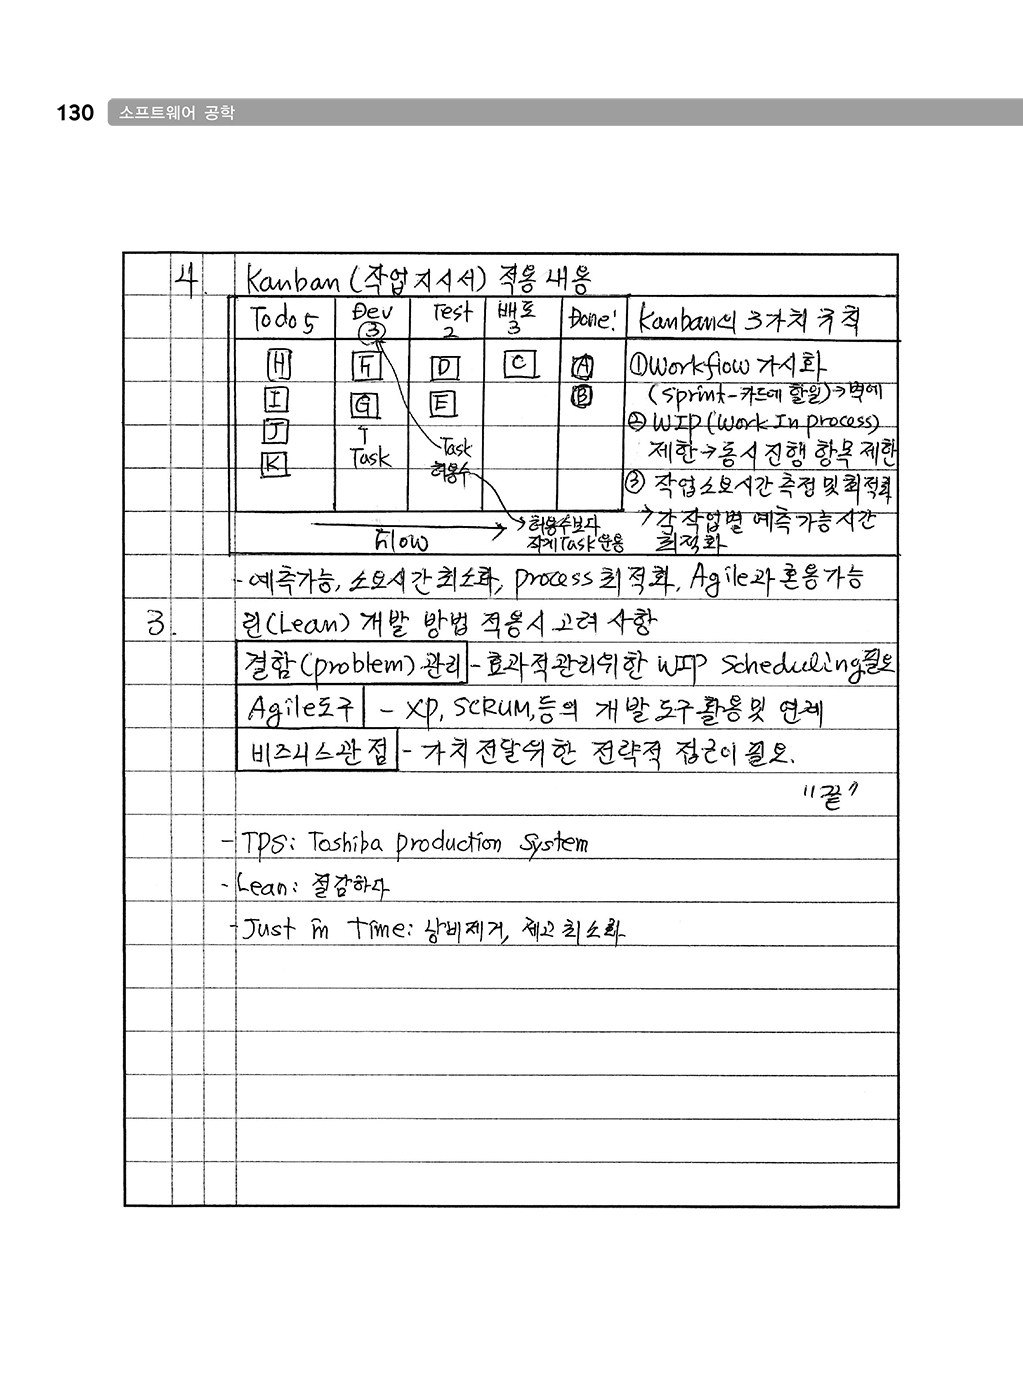 130 소프트웨어 공학
4. Kanban (작업 지시서) 적용 내용
Todo 5 Dev ③ Test 2 배포 3 Done! Kanban의 3가지 규칙
H F D C A ① Workflow 가시화
I G E B (sprint-카드에 할일)→벽에
J ② WIP (Work In process)
K ↑ Task Task 허용수 제한→동시 진행 항목 제한
③ 작업소요시간 측정 및 최적화
Flow →허용수보다 →각 작업별 예측가능시간
작게 Task 운용 최적화
- 예측가능, 소요시간 최소화, process 최적화, Agile과 혼용 가능
3. 린(Lean) 개발 방법 적용시 고려 사항
결함(problem) 관리 - 효과적관리위한 WIP Scheduling필요
Agile도구 - XP, SCRUM, 등의 개발 도구 활용 및 연계
비즈니스관점 - 가치 전달위한 전략적 접근이 필요.
"끝"
- TPS: Toshiba production System
- Lean: 절감하다
- Just in Time: 낭비제거, 재고 최소화